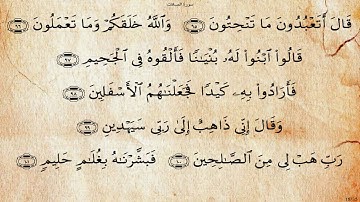 سورة الصافات
قَالَ أَتَعْبُدُونَ مَا تَنْحِتُونَ ﴿٩٥﴾ وَٱللَّهُ خَلَقَكُمْ وَمَا تَعْمَلُونَ ﴿٩٦﴾
قَالُوا۟ ٱبْنُوا۟ لَهُۥ بُنْيَـٰنًا فَأَلْقُوهُ فِى ٱلْجَحِيمِ ﴿٩٧﴾
فَأَرَادُوا۟ بِهِۦ كَيْدًا فَجَعَلْنَـٰهُمُ ٱلْأَسْفَلِينَ ﴿٩٨﴾
وَقَالَ إِنِّى ذَاهِبٌ إِلَىٰ رَبِّى سَيَهْدِينِ ﴿٩٩﴾
رَبِّ هَبْ لِى مِنَ ٱلصَّـٰلِحِينَ فَبَشَّرْنَـٰهُ بِغُلَـٰمٍ حَلِيمٍ